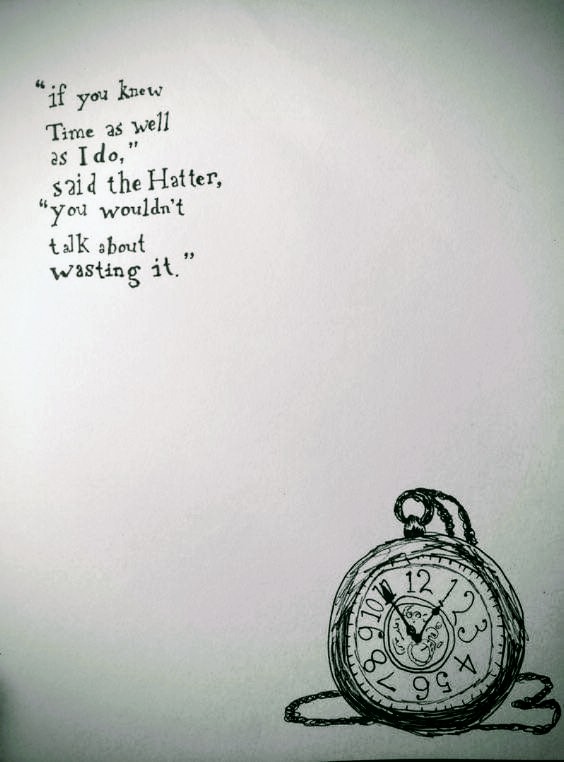 “if you knew
Time as well
as I do,”
said the Hatter,
“you wouldn't
talk about
wasting it.”
12
1
2
3
4
5
6
7
8
9
10
11